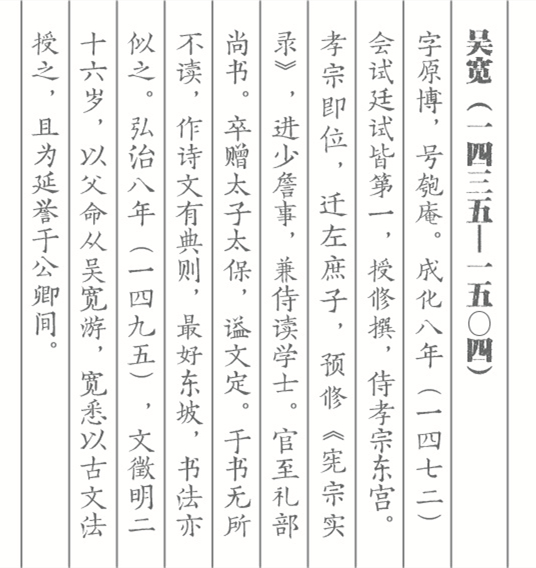 吴宽（一四三五—一五〇四）
字原博，号匏庵。成化八年（一四七二）
会试廷试皆第一，授修撰，侍孝宗东宫。
孝宗即位，迁左庶子，预修《宪宗实
录》，进少詹事，兼侍读学士。官至礼部
尚书。卒赠太子太保，谥文定。于书无所
不读，作诗文有典则，最好东坡，书法亦
似之。弘治八年（一四九五），文徵明二
十六岁，以父命从吴宽游，宽悉以古文法
授之，且为延誉于公卿间。